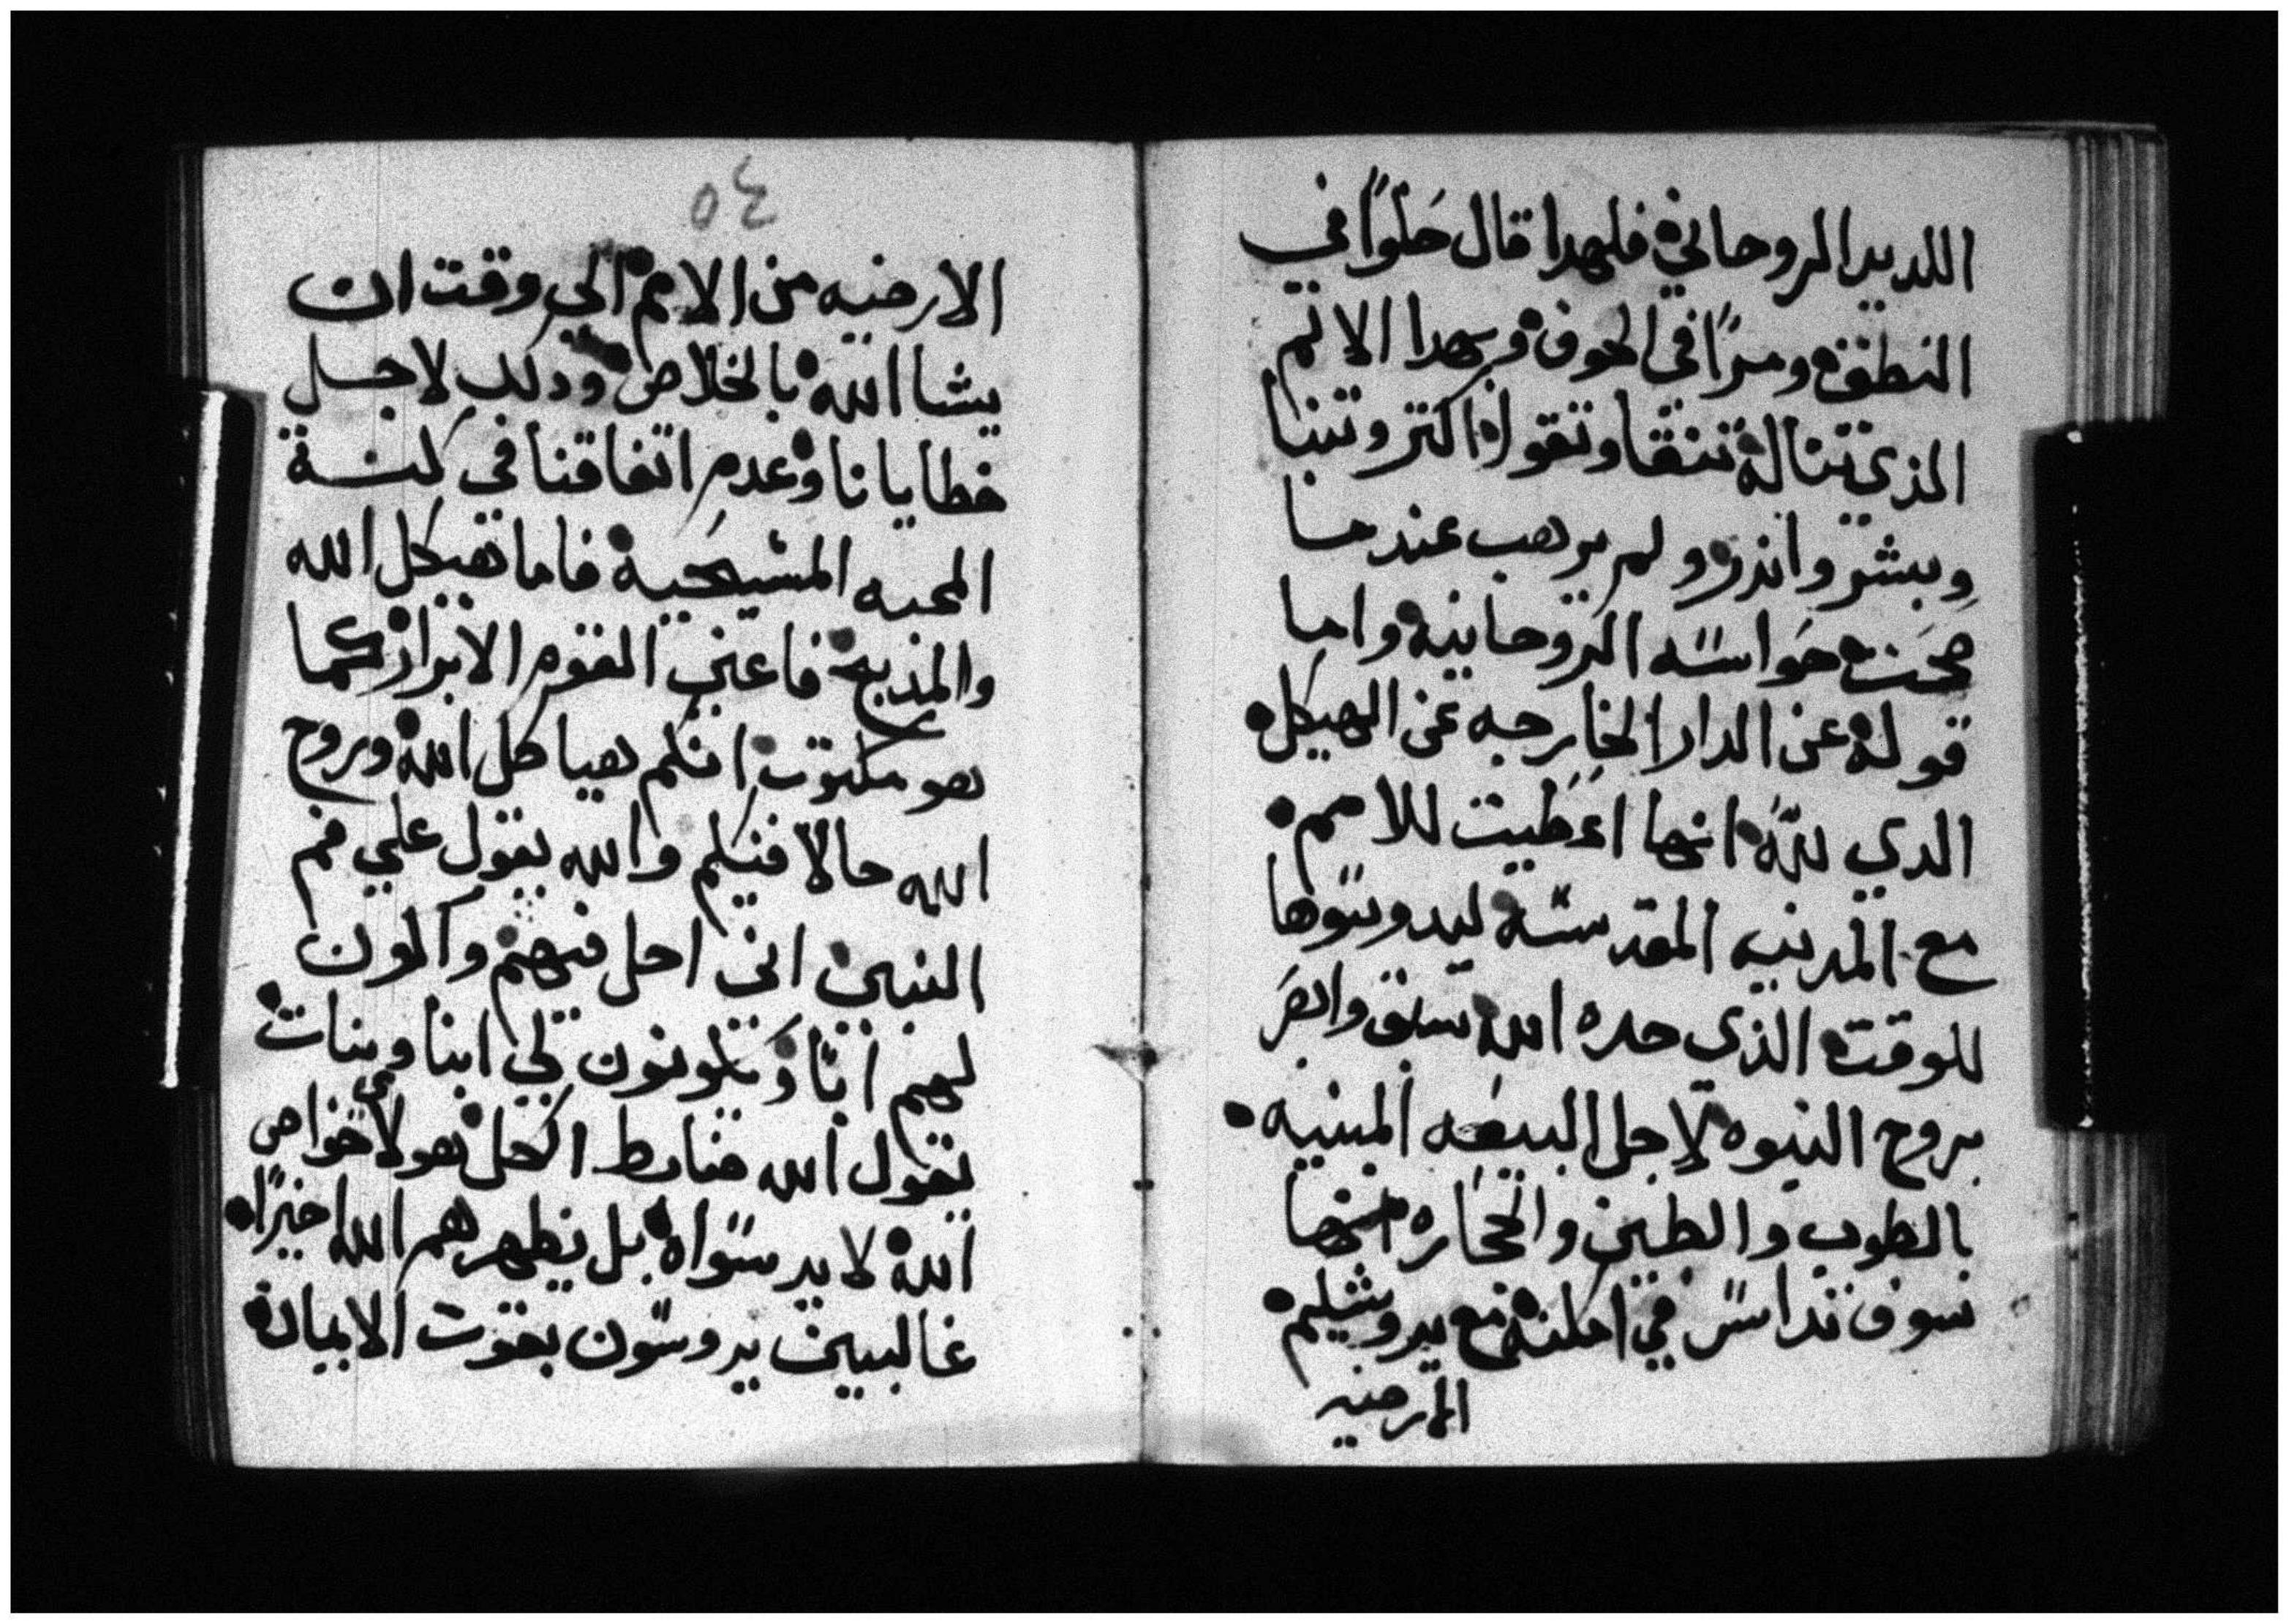 اللديد الروحاني فلهدا قال حلوًا في
النطق ومرًا في الجوف وبهدا الاتم
الذي تناله تنقا وتقوا اكتر وتنبا
وبشر وانذر ولم يرهب عندما
صحت حواسه الروحانيه واما
قوله عن الدار الخارجه عن الهيكل
الدي لله انها اعطيت للامم
مع المدينه المقدسه ليدوسوها
للوقت الذي حده الله سبق وابصر
بروح النبوه لاجل البيعه المبنيه
بالطوب والطين والحجاره انها
سوف تداس في امكنه مع يروشليم
الارضيه
٥٤
الارضيه من الامم الي وقت ان
يشا الله بالخلاص ودلك لاجل
خطايانا وعدم اتفاقنا في كترة
المحبه المسيحية فاما هيكل الله
والمذبح فاعني القوم الابرار كما
هو مكتوب انكم هياكل الله وروح
الله حالا فيكم والله يقول علي فم
النبين اني احل فيهم واكون
لهم ابًا ويكونون لي ابنا وبنات
يقول الله ضابط الكل هولاي خواص
الله لا يدسواه بل يظهرهم الله اخيرًا
غالبين يدوسون بقوت الابياده